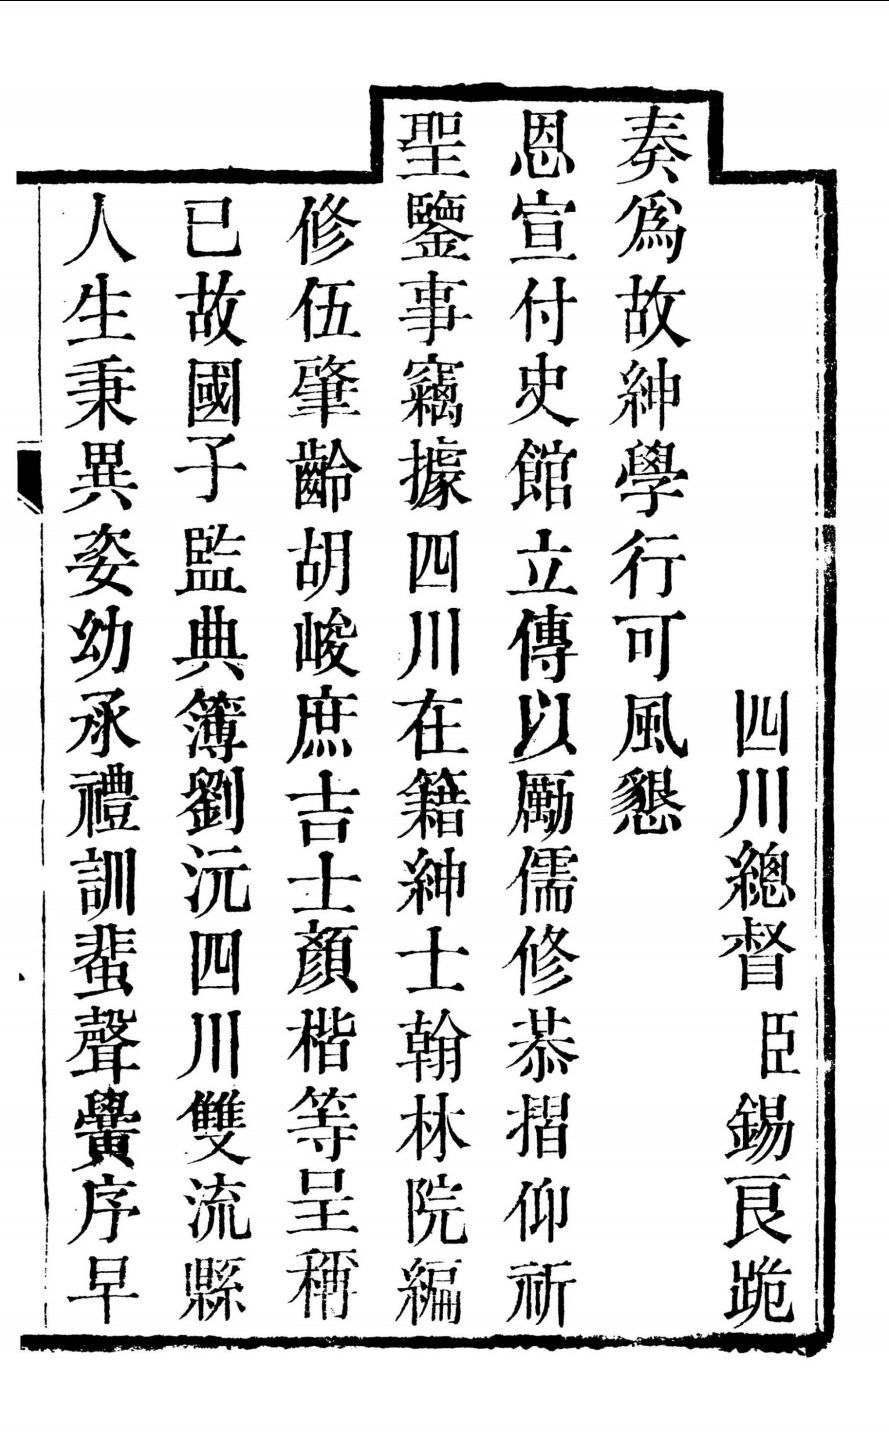 四川總督臣錫良跪
奏爲故紳學行可風懇
恩宣付史館立傳以勵儒修恭摺仰祈
聖鑒事竊據四川在籍紳士翰林院編
修伍肇齡胡峻庶吉士顏楷等呈稱
已故國子監典簿劉沅四川雙流縣
人生秉異姿幼承禮訓蜚聲黌序早